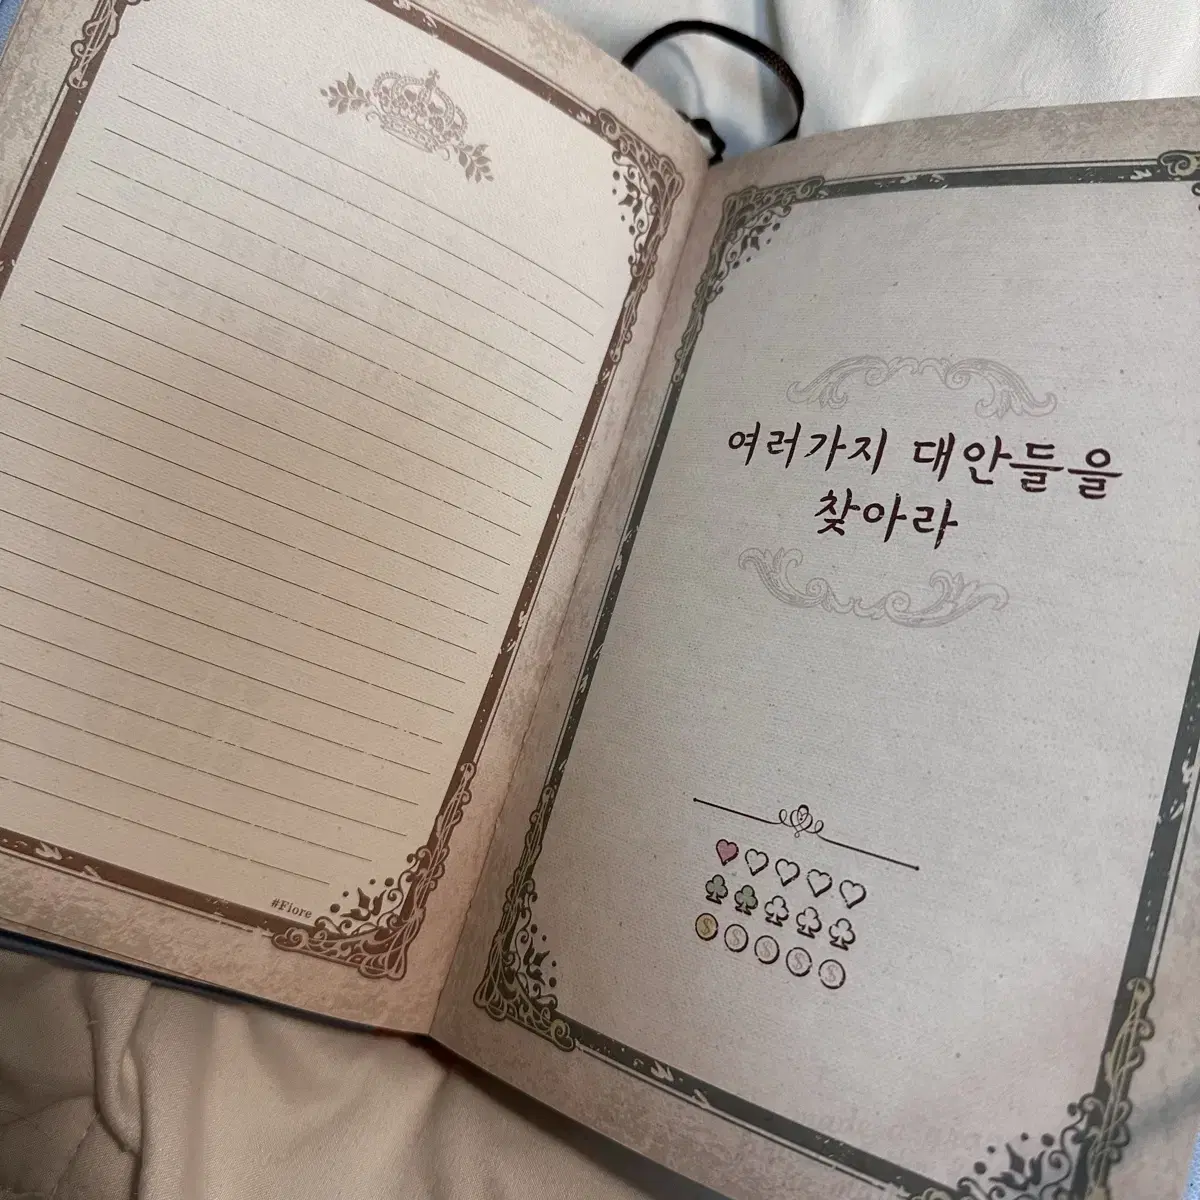 #Fiore
여러가지 대안들을
찾아라